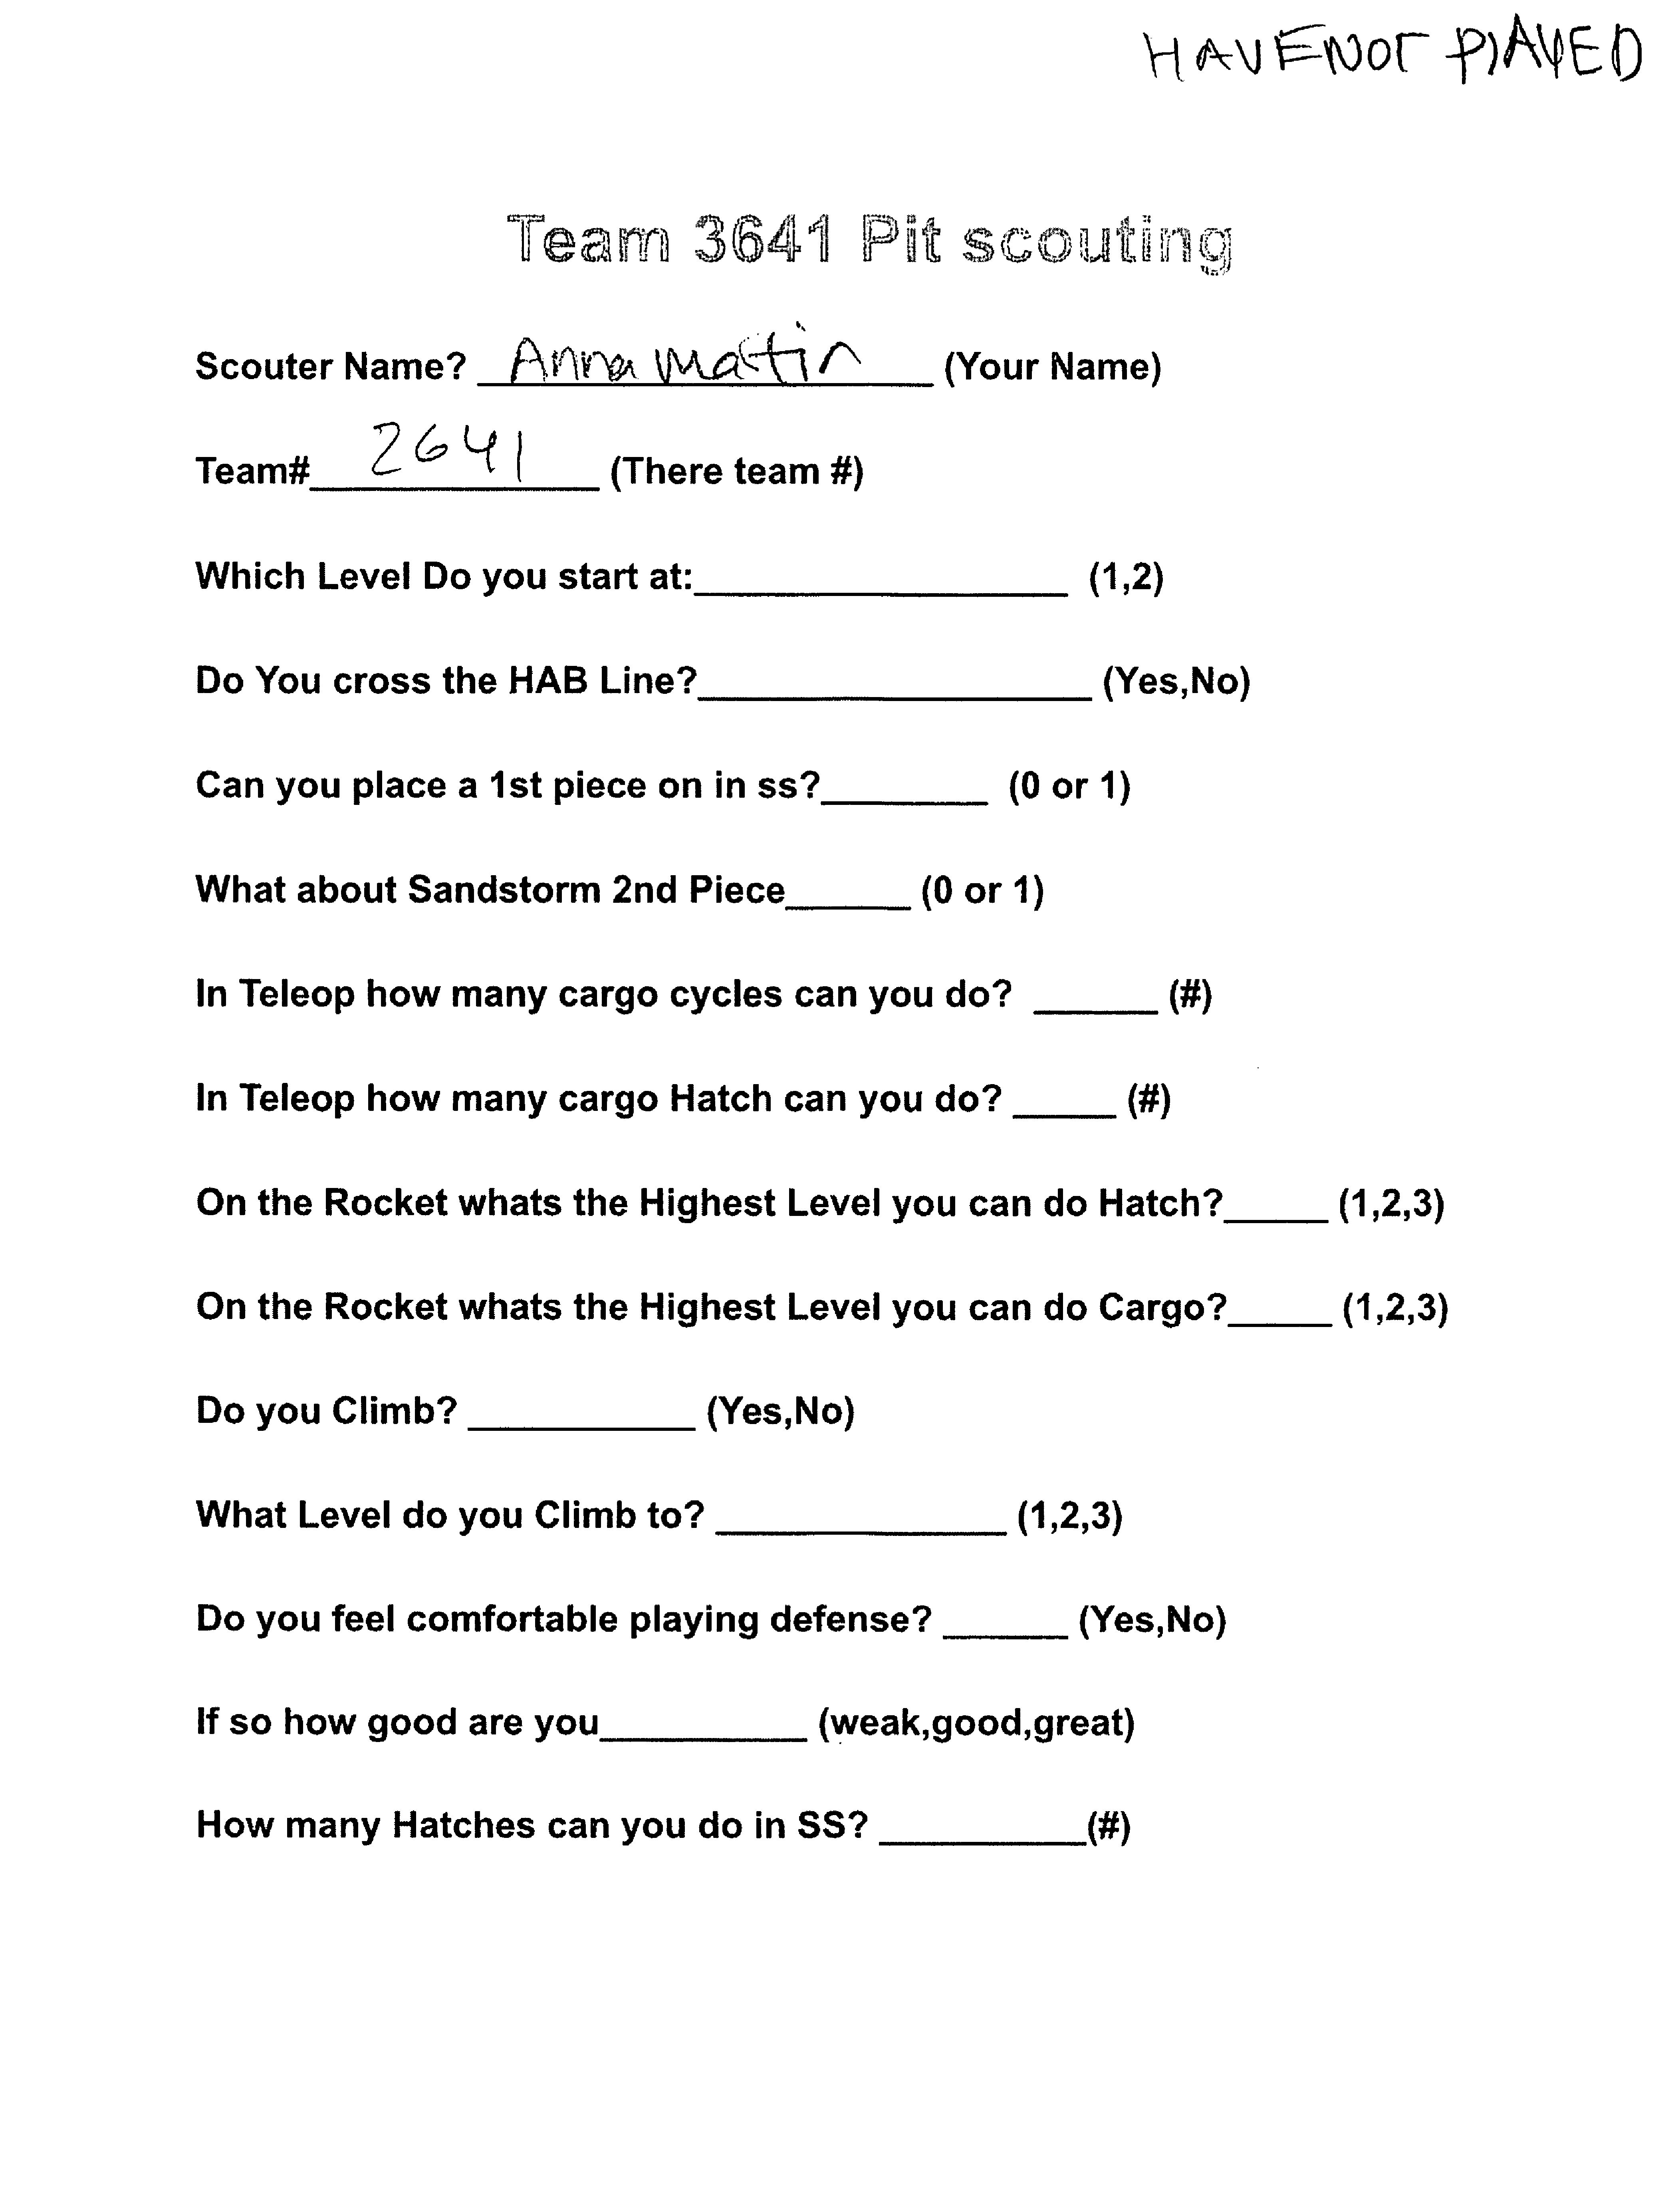 HAVE NOT PlAYED
Team 3641 Pit scouting
Scouter Name? Anna Mattin (Your Name)
Team# 2641 (There team #)
Which Level Do you start at:__________________ (1,2)
Do You cross the HAB Line?___________________ (Yes,No)
Can you place a 1st piece on in ss?________ (0 or 1)
What about Sandstorm 2nd Piece______ (0 or 1)
In Teleop how many cargo cycles can you do? ______ (#)
In Teleop how many cargo Hatch can you do? _____ (#)
On the Rocket whats the Highest Level you can do Hatch?_____ (1,2,3)
On the Rocket whats the Highest Level you can do Cargo?_____ (1,2,3)
Do you Climb? ___________ (Yes,No)
What Level do you Climb to? ______________ (1,2,3)
Do you feel comfortable playing defense? ______ (Yes,No)
If so how good are you__________ (weak,good,great)
How many Hatches can you do in SS? __________(#)